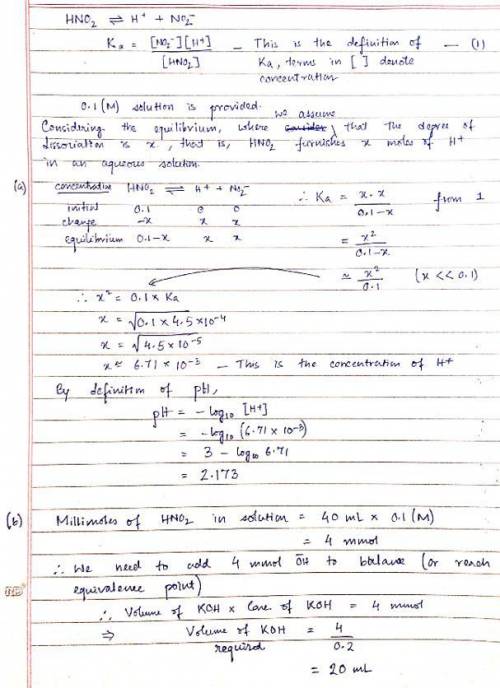 HNO2 ⇌ H+ + NO2-
Ka = [NO2-][H+] / [HNO2] - This is the definition of — (1)
Ka, terms in [ ] denote
concentration
0.1 (M) solution is provided.
Considering the equilibrium, where consider we assume that the degree of
dissociation is x, that is, HNO2 furnishes x moles of H+
in an aqueous solution.
(a) concentration HNO2 ⇌ H+ + NO2- ∴ Ka = x.x / 0.1-x from 1
initial 0.1 0 0
change -x x x
equilibrium 0.1-x x x
= x² / 0.1-x
≈ x² / 0.1 (x << 0.1)
∴ x² = 0.1 x Ka
x = √0.1 x 4.5 x 10-4
x = √4.5 x 10-5
x ≈ 6.71 x 10-3 - This is the concentration of H+
By definition of pH,
pH = -log10 [H+]
= -log10 (6.71 x 10-3)
= 3 - log10 6.71
= 2.173
(b) Millimoles of HNO2 in solution = 40 mL x 0.1 (M)
= 4 mmol
∴ We need to add 4 mmol ŌH to balance (or reach
equivalence point)
∴ Volume of KOH x Conc of KOH = 4 mmol
⇒ Volume of KOH required = 4 / 0.2
= 20 mL